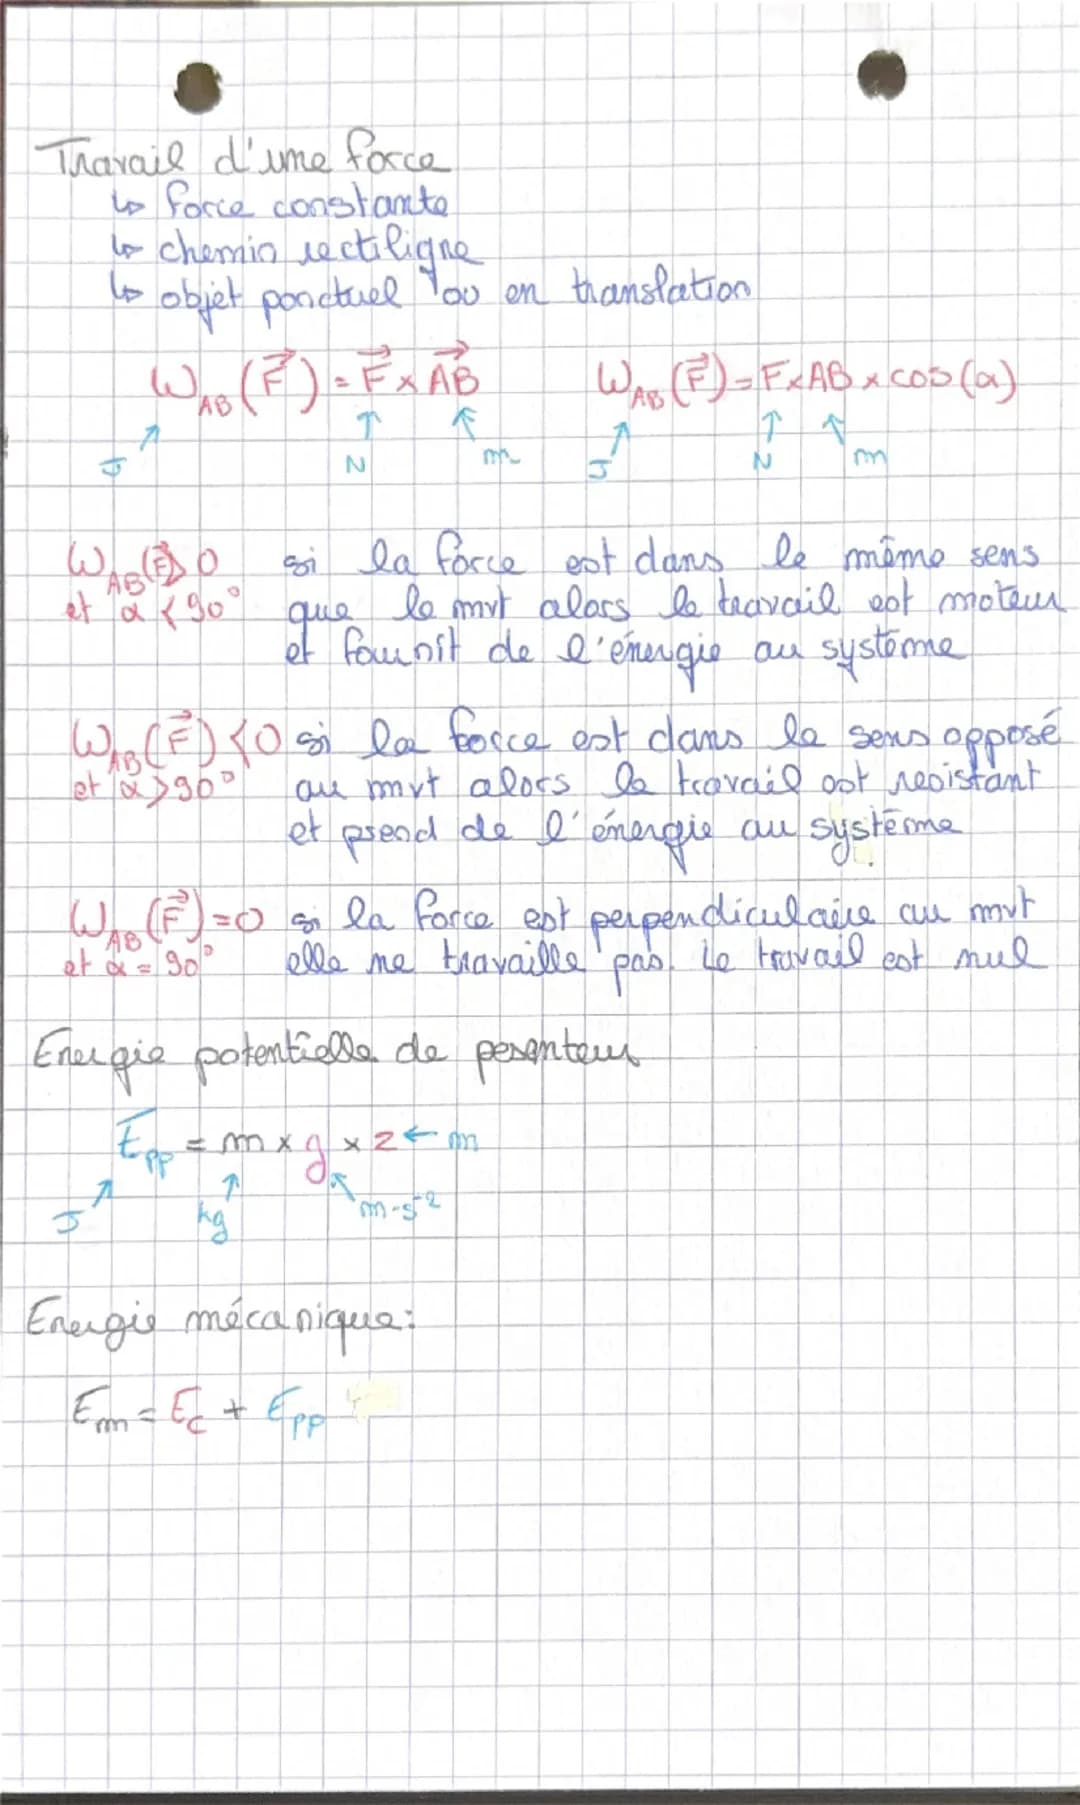 Travail d'une force
↳ force constante
↳ chemin rectiligne
↳ objet ponctuel ou en translation
W_AB (F⃗) = F⃗ x AB⃗ W_AB (F⃗) = F x AB x cos(α)
J N m J N m
W_AB (F⃗) > 0 si la force est dans le même sens
et α < 90° que le mvt alors le travail est moteur
et fournit de l'énergie au système
W_AB (F⃗) < 0 si la force est dans le sens opposé
et α > 90° au mvt alors le travail est resistant
et prend de l'énergie au système.
W_AB (F⃗) = 0 si la force est perpendiculaire au mvt
et α = 90° elle ne travaille pas. Le travail est nul
Energie potentielle de pesanteur
Epp = m x g x z ← m
J kg m·s⁻²
Energie mécanique:
Em = Ec + Epp